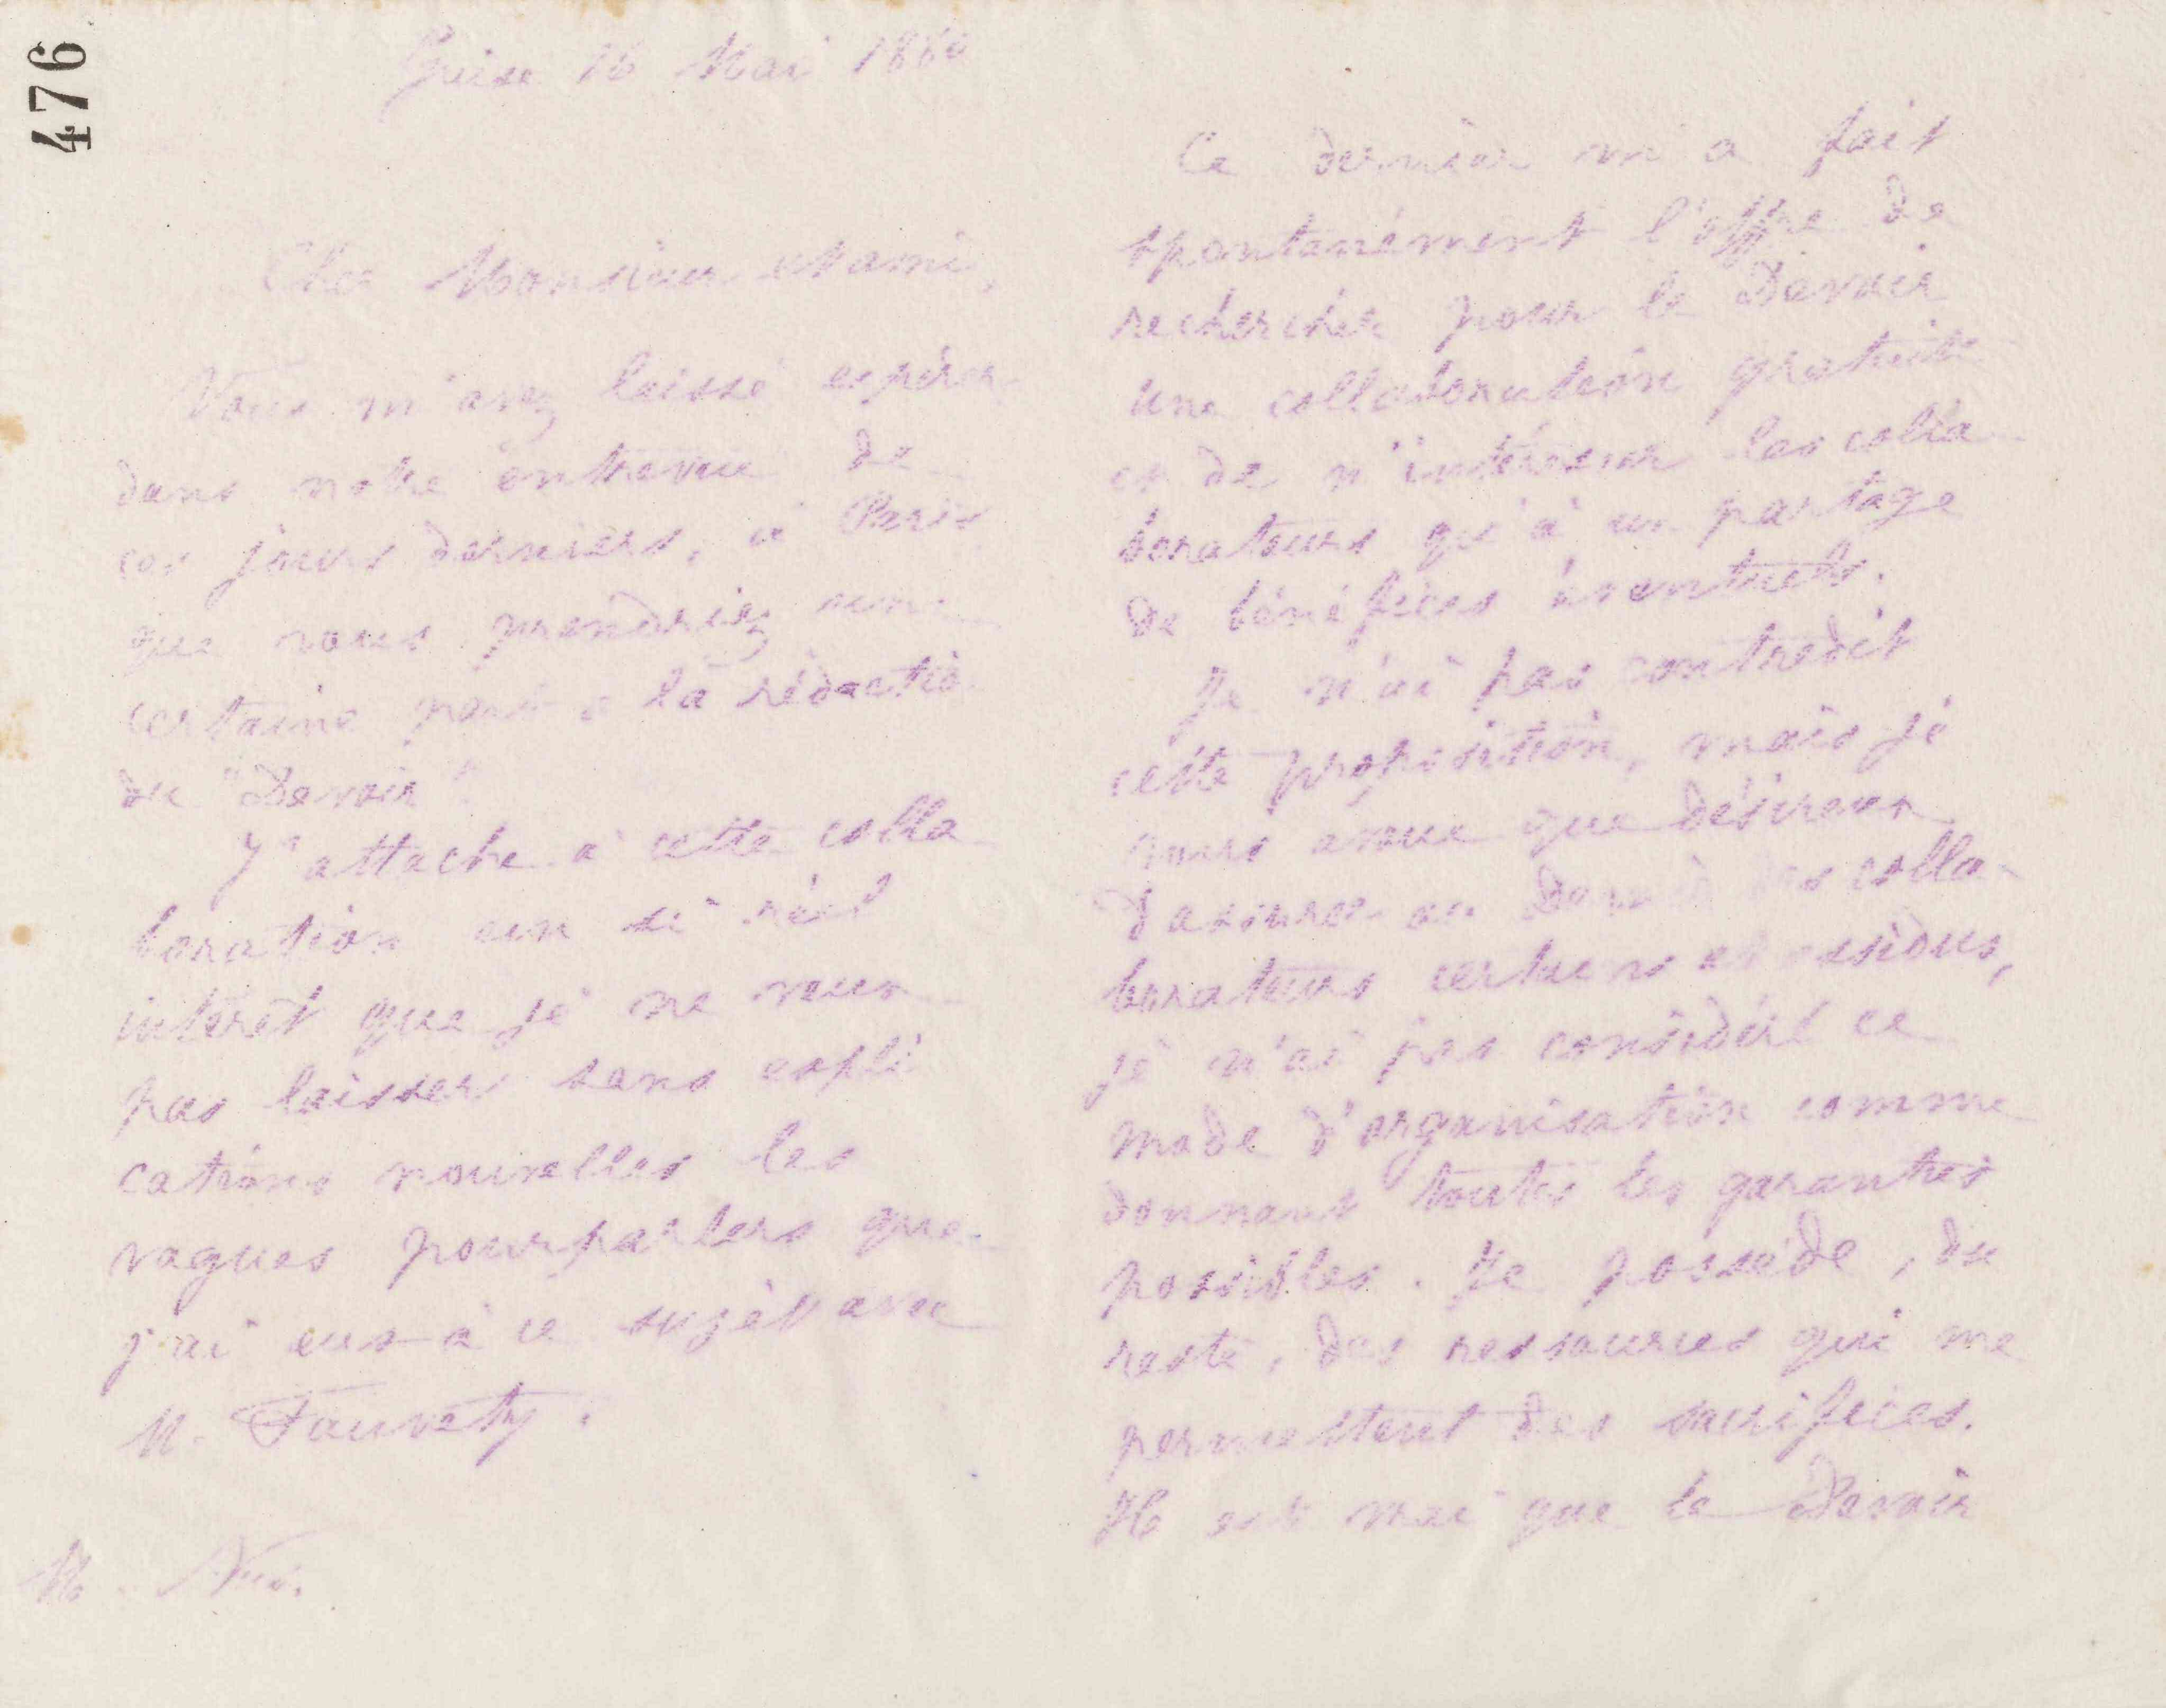 476
Guise 16 Mai 1880
Cher Monsieur et ami,
Vous m'avez laissé espérer
dans notre entrevue de
ces jours derniers, à Paris
que vous prendriez une
certaine part à la rédactio
du "Devoir"
J'attache à cette colla
boration un si réel
intérêt que je ne veux
pas laisser sans expli
cations nouvelles les
vagues pourparlers que
j'ai eus à ce sujet avec
M. Fauvety.
M. Nus.
Ce dernier m'a fait
spontanément l'offre de
rechercher pour le Devoir
une collaboration gratuite
et de n'intéresser les colla
borateurs qu'à un partage
de bénéfices éventuels.
Je n'ai pas contredit
cette proposition, mais je
vous avoue que désireux
d'assurer au Devoir des colla-
borateurs certains et assidus,
je n'ai pas considéré ce
mode d'organisation comme
donnant toutes les garanties
possibles. Je possède, du
reste, des ressources qui me
permettent des sacrifices.
Il est vrai que le Devoir